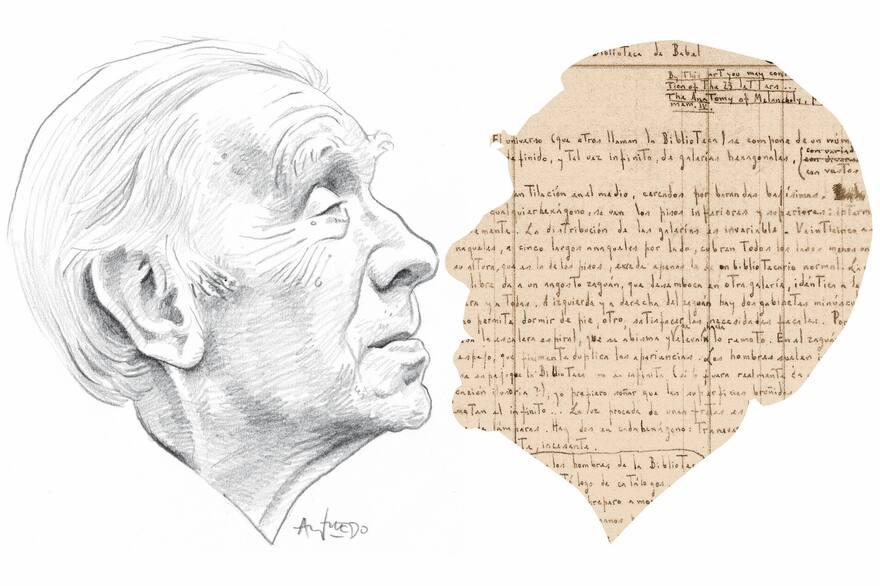 Biblioteca de Babel
By this art you may con
tion of the 23 letters...
The Anatomy of Melancholy,
El universo (que otros llaman la Biblioteca) se compone de un núm
efinido, y tal vez infinito, de galerías hexagonales, (con variad
con vastos
tilación en el medio, cercados por barandas bajísimas.
cualquier hexágono se ven los pisos inferiores y superiores: interm
emente. La distribución de las galerías es invariable. Veinticinco a
naqueles, a cinco largos anaqueles por lado, cubren todos los lados menos un
su altura, que es la de los pisos, excede apenas la de un bibliotecario normal. La
libre da a un angosto zaguán, que desemboca en otra galería, idéntica a la
era y a todas. A izquierda y a derecha del zaguán hay dos gabinetes minúsc
o permite dormir de pie, otro, satisfacer las necesidades fecales. Por
la escalera espiral, que se abisma y se eleva lo remoto. En el zagu
espejo, que fielmente duplica las apariencias. Los hombres suelen
ese espejo que la Biblioteca no es infinita (si lo fuera realmente
cación ilusoria?), yo prefiero soñar que las superficies bruñidas
metan el infinito... La luz procede de unas frutas es
lámparas. Hay dos en cada hexágono: transver
te, incesante.
los hombres de la Bibliotec
tálogo de catálogos
preparo a mor
anos
ALFREDO